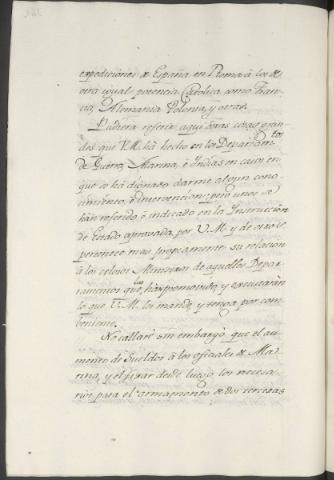 expediciones de España en Roma à los de
otra igual potencia Catolica como Fran-
cia, Alemania Polonia, y otras.
Pudiera referir aqui otras cosas gran-
des que V.M. hà hecho en los Departam.tos
de Guerra, Marina, è Indias en casos en
que se hà dignado darme algun cono-
cimiento, è intervencion; pero unos se
han referido, è indicado en la Instruccion
de Estado aprovada por V.M. y de otros
pertenece mas propiamente su relacion
à los celosos Ministros de aquellos Depar-
tamentos que las han promovido, y executarán
lo que V.M. les mande, y tenga por con-
beniente.
No callaré sin embargo que el au-
mento de sueldos à los oficiales de Ma-
rina, y el fixar desde luego los necesa-
rios para el armamento de dos terceras